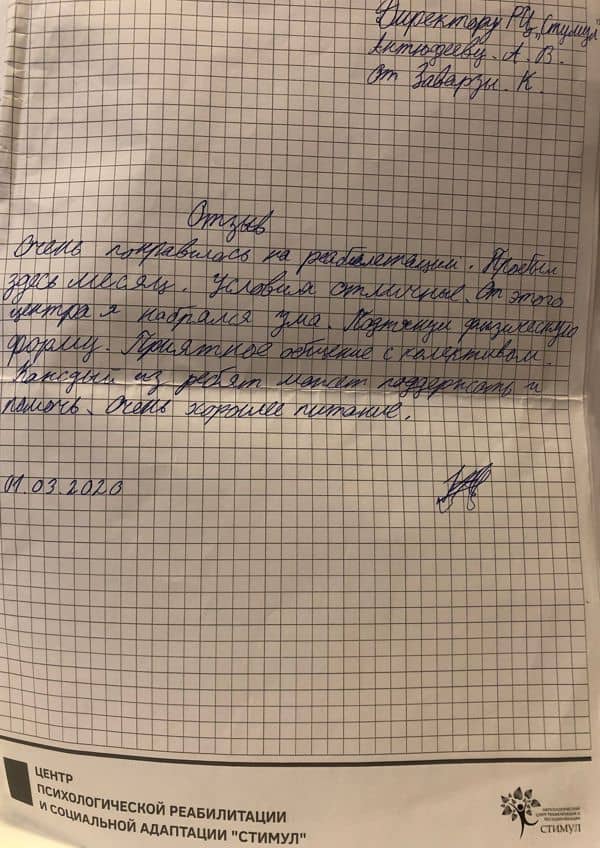 Директору РЦ „Стимул"
Антюдееву. А. В.
От Заварзы. К.
Отзыв
Очень понравилась на реабилетации. Пробыл
здесь месяц. Условия отличные. От этого
центра я набрался ума. Подтянул физическую
форму. Приятное общение с колективом.
Каждый из ребят может поддержать и
помочь. Очень хорошее питание.
01.03.2020
ЦЕНТР
ПСИХОЛОГИЧЕСКОЙ РЕАБИЛИТАЦИИ
И СОЦИАЛЬНОЙ АДАПТАЦИИ "СТИМУЛ"
СТИМУЛ